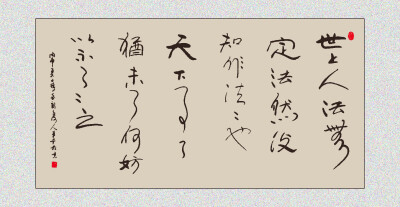 世上人法無
定法然後
知非法〻也
天下事了
猶未了何妨
以不了〻之